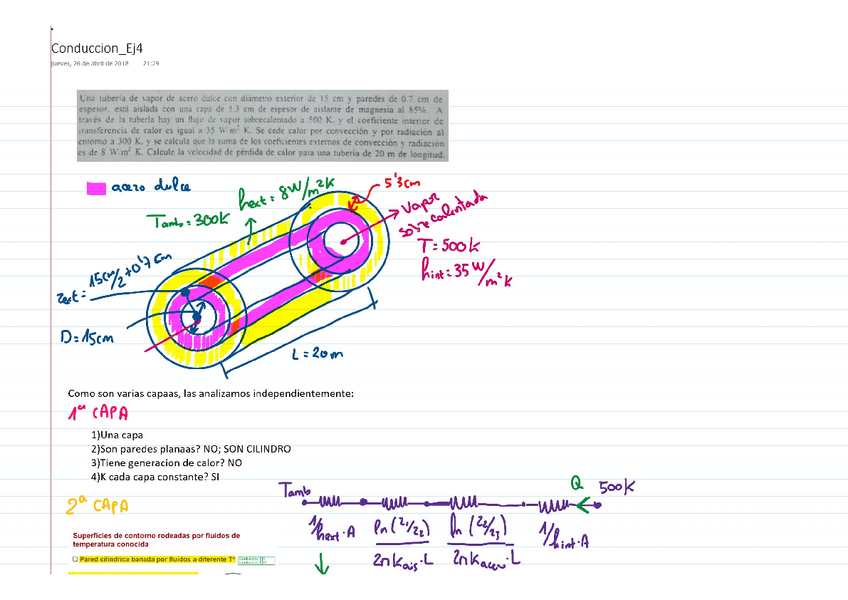 Conduccion_Ej4
jueves, 26 de abril de 2018 21:29
Una tubería de vapor de acero dulce con diámetro exterior de 15 cm y paredes de 0.7 cm de
espesor, está aislada con una capa de 5.3 cm de espesor de aislante de magnesia al 85%. A
través de la tubería hay un flujo de vapor sobrecalentado a 500 K, y el coeficiente interior de
transferencia de calor es igual a 35 W/m² K. Se cede calor por convección y por radiación al
entorno a 300 K, y se calcula que la suma de los coeficientes externos de convección y radiación
es de 8 W/m² K. Calcule la velocidad de pérdida de calor para una tubería de 20 m de longitud.
acero dulce
hext = 8W/m²K
5'3cm
Tamb = 300K
Vapor
sobrecalentada
T = 500K
hint = 35W/m²K
rext = 15cm/2 + 0'7cm
D = 15cm
L = 20m
Como son varias capaas, las analizamos independientemente:
1ª CAPA
1)Una capa
2)Son paredes planaas? NO; SON CILINDRO
3)Tiene generacion de calor? NO
4)K cada capa constante? SI
2ª CAPA
Tamb
Q
500K
1/hext·A
ln(r1/r2)
2πKais·L
ln(r2/r3)
2πKacero·L
1/hint·A
Superficies de contorno rodeadas por fluidos de
temperatura conocida
Pared cilíndrica bañada por fluidos a diferente Tª